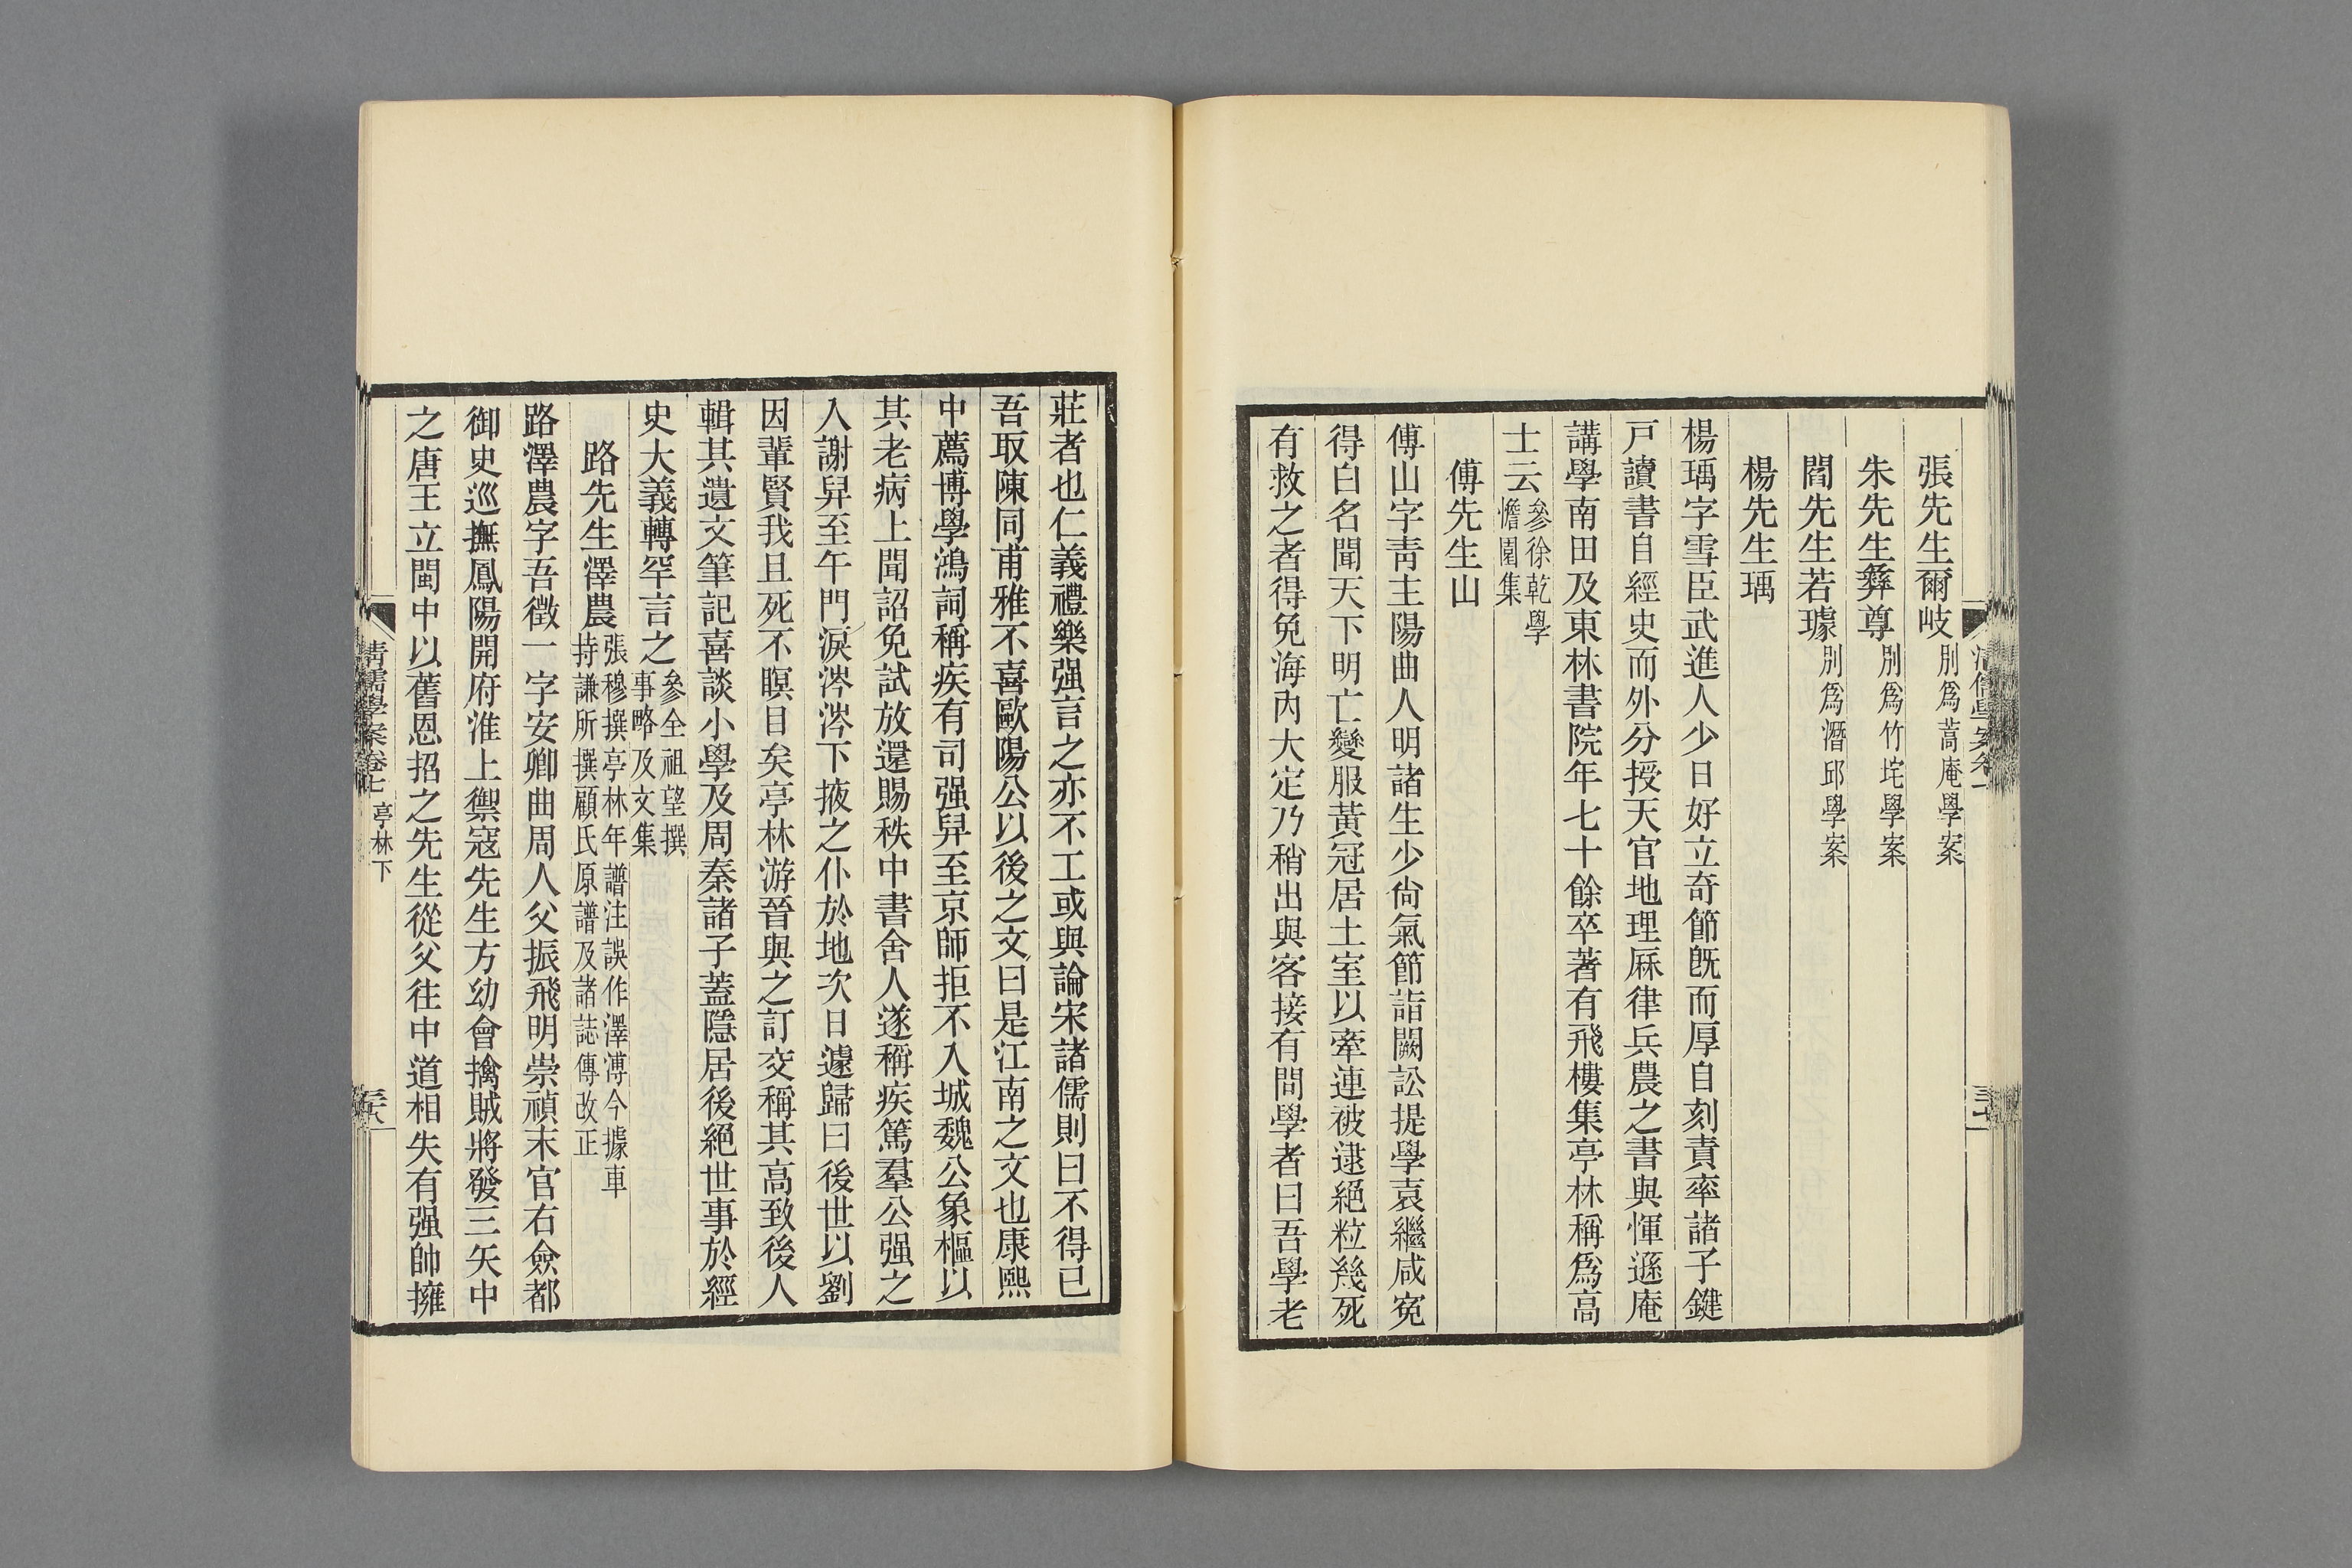 張先生爾岐別爲蒿庵學案
朱先生彝尊別爲竹垞學案
閻先生若璩別爲潛邱學案
楊先生瑀
楊瑀字雪臣武進人少日好立奇節旣而厚自刻責率諸子鍵
戸讀書自經史而外分授天官地理厤律兵農之書與惲遜庵
講學南田及東林書院年七十餘卒著有飛樓集亭林稱爲高
士云參徐乾學
憺園集
傅先生山
傅山字靑主陽曲人明諸生少尙氣節詣闕訟提學袁繼咸寃
得白名聞天下明亡變服黃冠居土室以牽連被逮絕粒幾死
有救之者得免海內大定乃稍出與客接有問學者曰吾學老
莊者也仁義禮樂强言之亦不工或與論宋諸儒則曰不得已
吾取陳同甫雅不喜歐陽公以後之文曰是江南之文也康熙
中薦博學鴻詞稱疾有司强舁至京師拒不入城魏公象樞以
其老病上聞詔免試放還賜秩中書舍人遂稱疾篤羣公强之
入謝舁至午門淚涔涔下掖之仆於地次日遽歸曰後世以劉
因輩賢我且死不瞑目矣亭林游晉與之訂交稱其高致後人
輯其遺文筆記喜談小學及周秦諸子蓋隱居後絕世事於經
史大義轉罕言之參全祖望撰
事略及文集
路先生澤農張穆撰亭林年譜注誤作澤溥今據車
持謙所撰顧氏原譜及諸誌傳改正
路澤農字吾徵一字安卿曲周人父振飛明崇禎末官右僉都
御史巡撫鳳陽開府淮上禦寇先生方幼會擒賊將發三矢中
之唐王立閩中以舊恩招之先生從父往中道相失有强帥擁
清儒學案卷七 亭林下
三十八